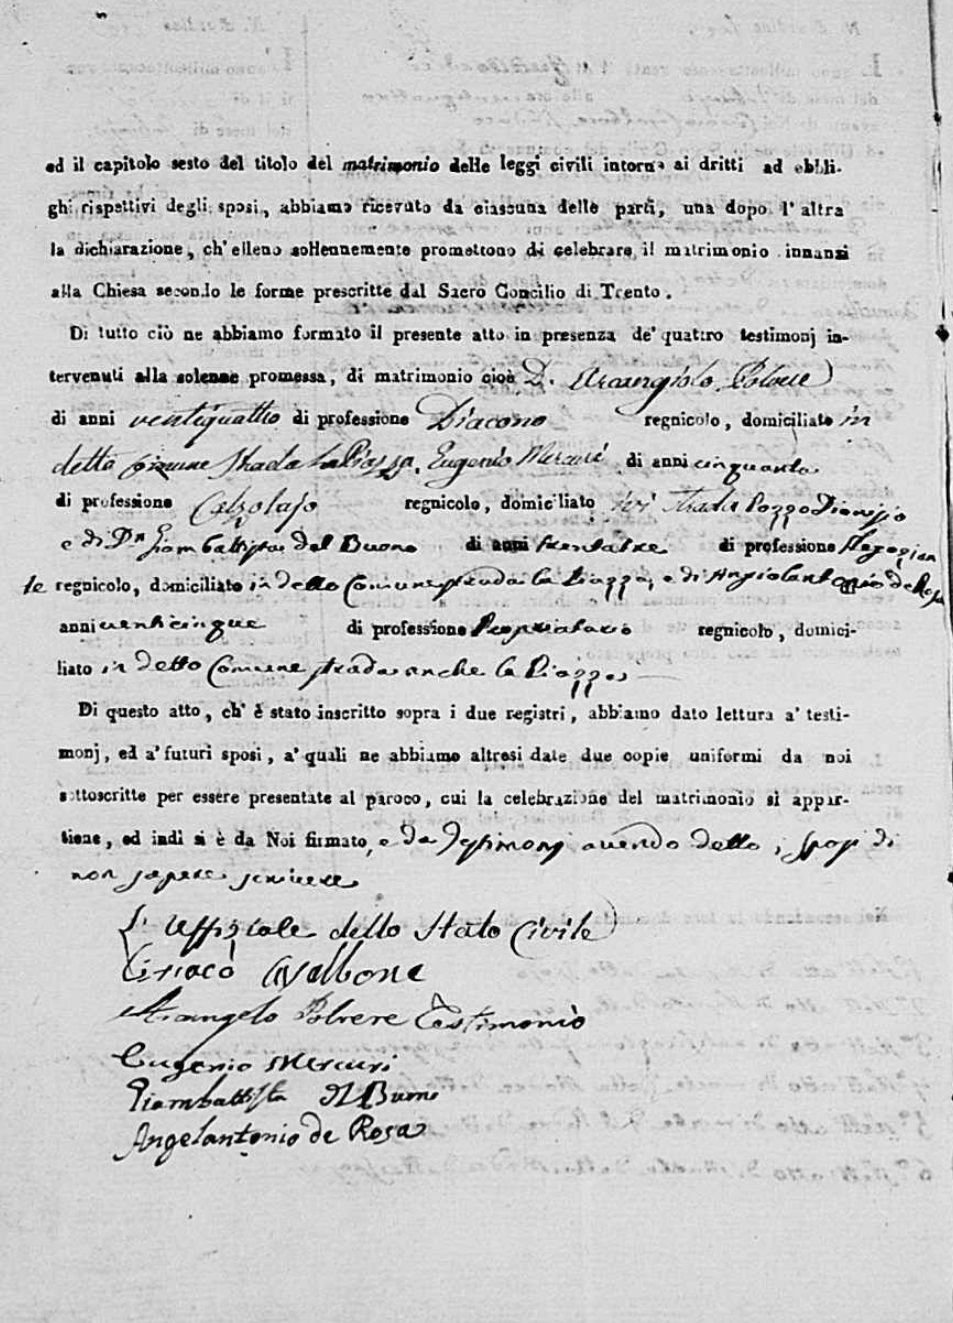 ed il capitolo sesto del titolo del matrimonio delle leggi civili intorno ai dritti ad obbli-
ghi rispettivi degli sposi, abbiamo ricevuto da ciascuna delle parti, una dopo l'altra
la dichiarazione, ch'elleno sollennemente promettono di celebrare il matrimonio innanzi
alla Chiesa secondo le forme prescritte dal Sacro Concilio di Trento.
Di tutto ciò ne abbiamo formato il presente atto in presenza de' quattro testimonj in-
tervenuti alla solenne promessa, di matrimonio cioè D. Arcangiolo Polvere
di anni ventiquattro di professione Diacono regnicolo, domiciliato in
detto Comune Strada la Piazza, Eugenio Mercuri di anni cinquanta
di professione Calzolajo regnicolo, domiciliato ivi Strada Pozzo Dionisio
e di Dn Giambattista del Buono di anni trentatre di professione Negozian
te regnicolo, domiciliato in detto Comune strada la Piazza, e di Angiolantonio de Rosa
anni venticinque di professione Proprietario regnicolo, domici-
liato in detto Comune strada anche la Piazza
Di questo atto, ch'è stato inscritto sopra i due registri, abbiamo dato lettura a' testi-
monj, ed a' futuri sposi, a' quali ne abbiamo altresì date due copie uniformi da noi
sottoscritte per essere presentate al paroco, cui la celebrazione del matrimonio si appar-
tiene, ed indi si è da Noi firmato, e da Testimonj avendo detto i sposi di
non sapere scrivere
L'Uffiziale dello Stato Civile
Ciriaco Calbone
Arcangelo Polvere Testimonio
Eugenio Mercuri
Giambattista del Buono
Angelantonio de Rosa